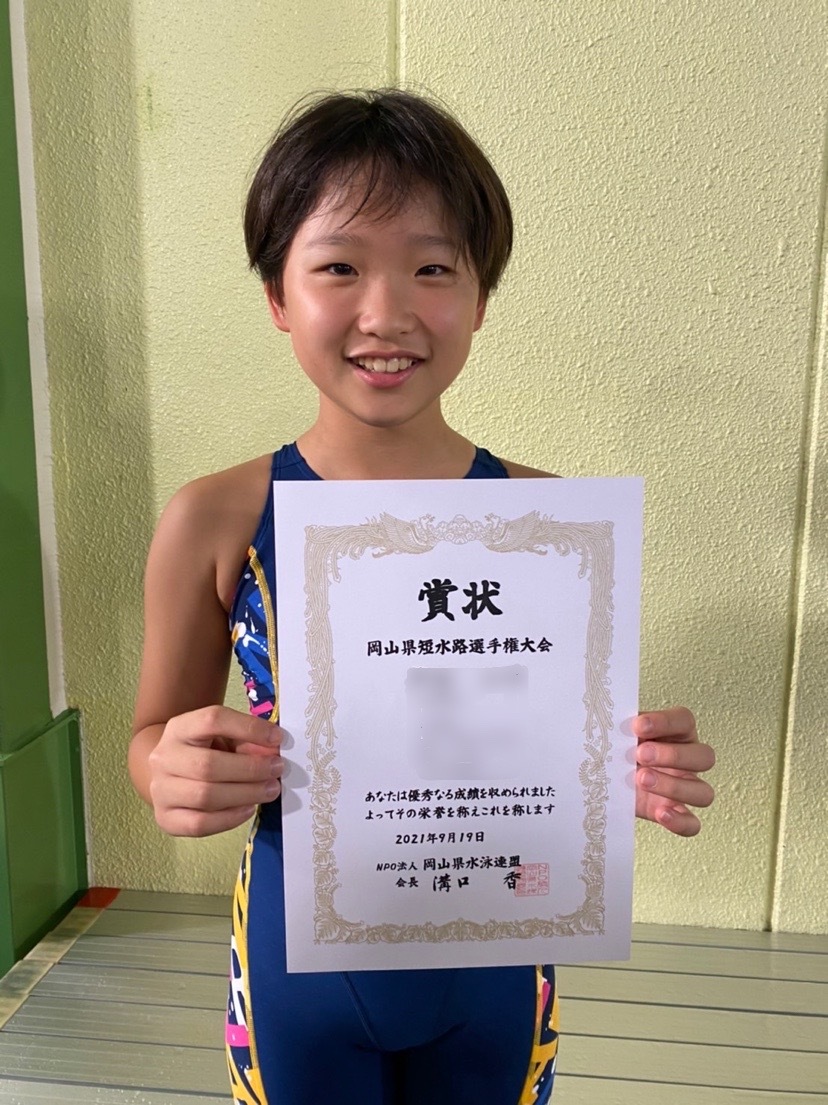 賞状
岡山県短水路選手権大会
あなたは優秀なる成績を収められました
よってその栄誉を称えこれを称します
2021年9月19日
NPO法人 岡山県水泳連盟
会長 溝口 香